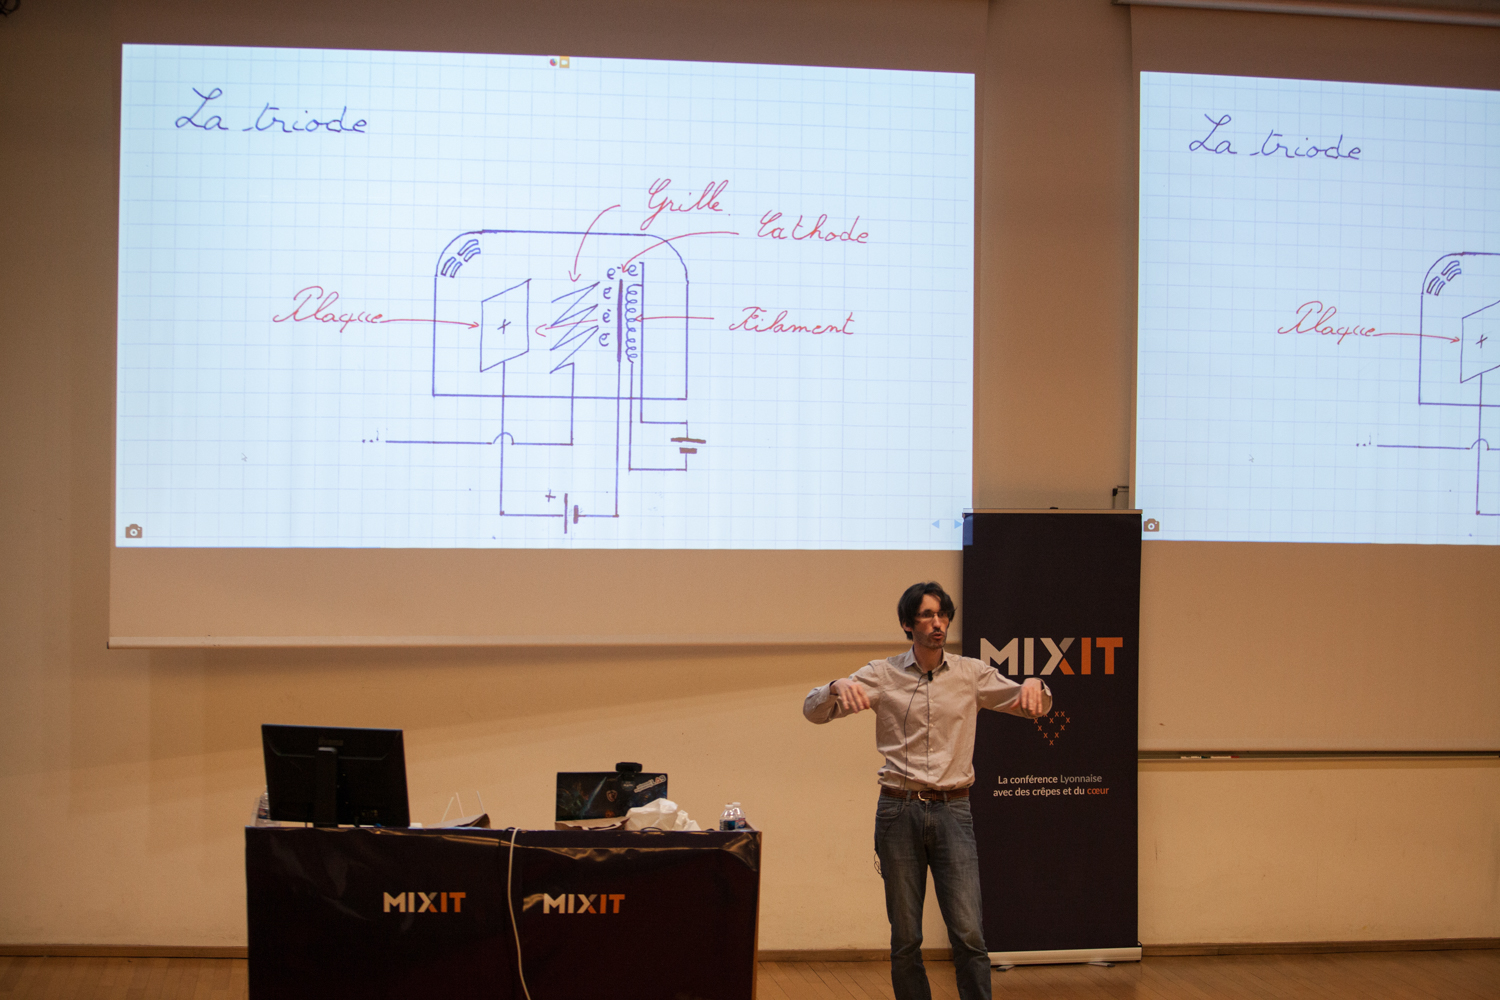 La triode
Grille
Cathode
Plaque
Filament
+
e⁻ e⁻
e⁻
e⁻
e⁻
+
La triode
Plaque
+
MIXIT
La conférence Lyonnaise
avec des crêpes et du cœur
MIXIT
MIXIT